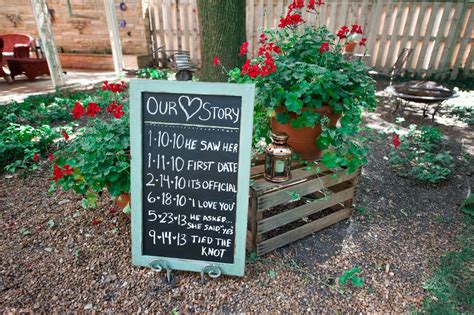 OUR ♡ STORY
1·10·10 HE SAW HER
1·11·10 FIRST DATE
2·14·10 IT'S OFFICIAL
6·18·10 "I LOVE YOU"
5·23·13 HE ASKED...
SHE SAID "YES"
9·14·13 TIED THE
KNOT